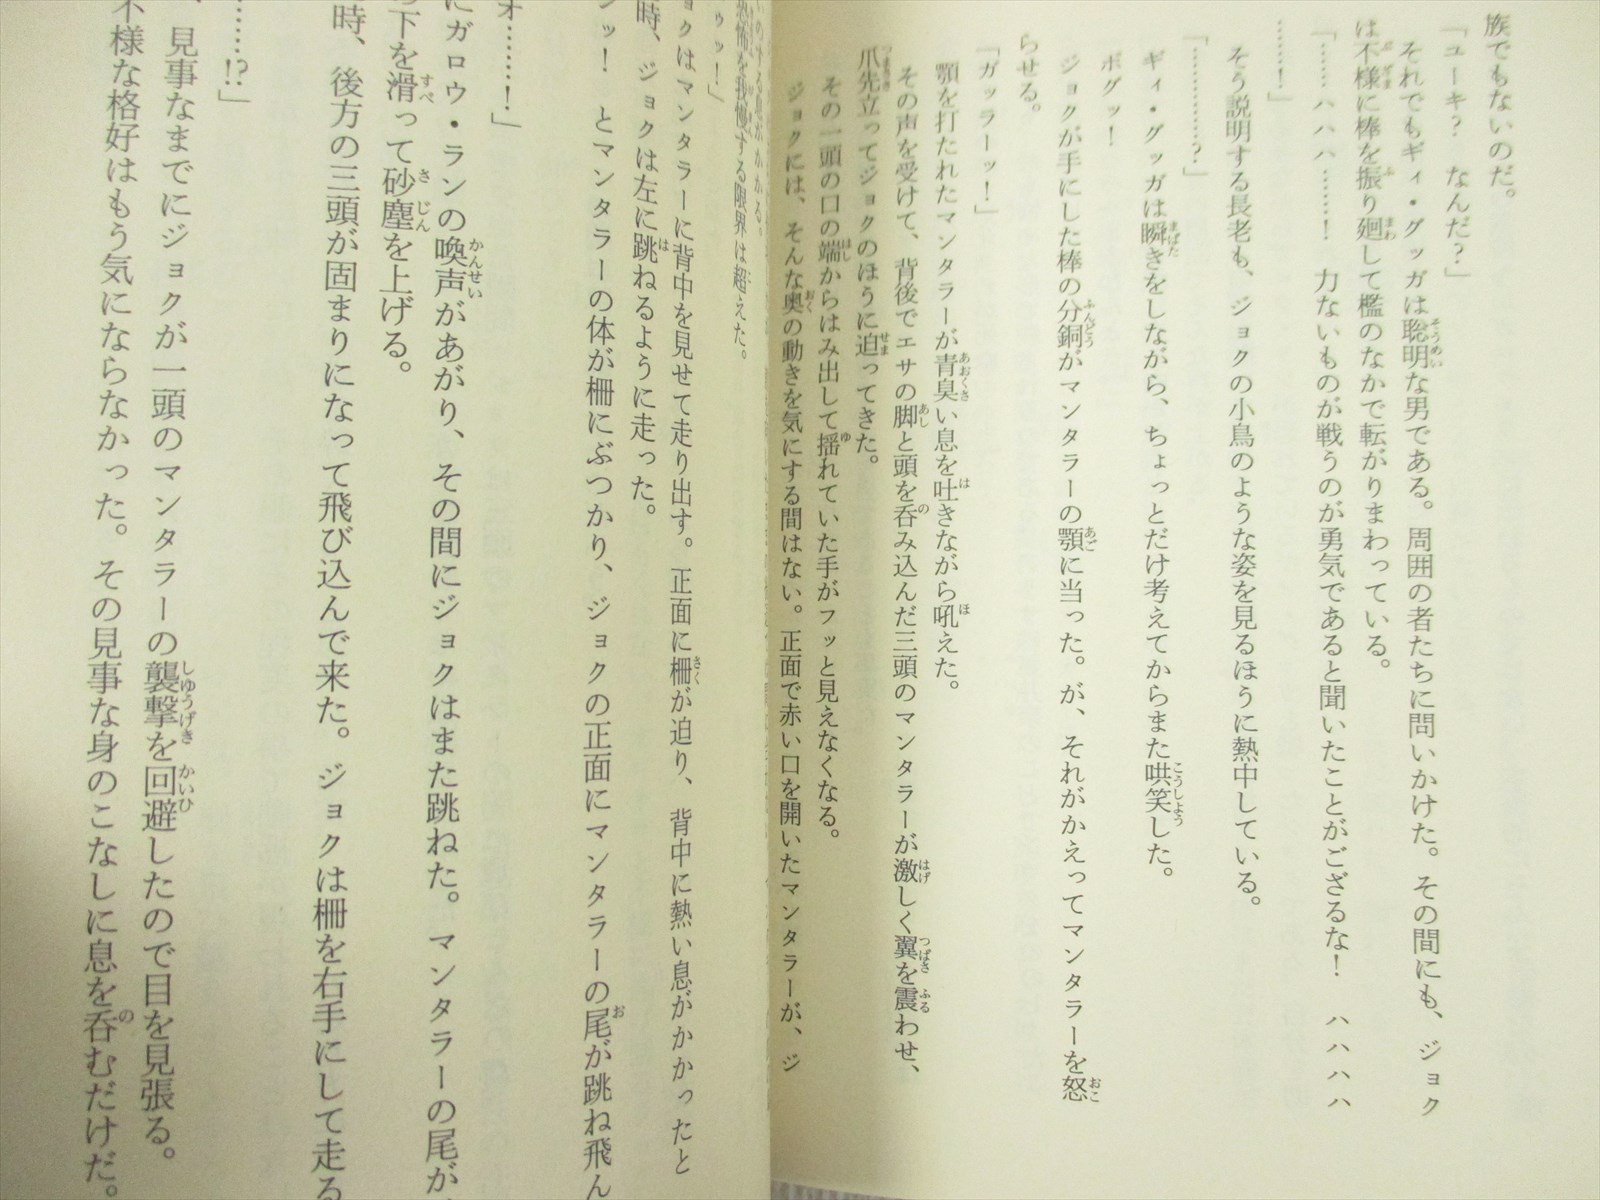 族でもないのだ。
「ユーキ？　なんだ？」
それでもギィ・グッガは聡明な男である。周囲の者たちに問いかけた。その間にも、ジョク
は不様に棒を振り廻して檻のなかで転がりまわっている。
「……ハハハ………！　力ないものが戦うのが勇気であると聞いたことがござるな！　ハハハハ
………！」
そう説明する長老も、ジョクの小鳥のような姿を見るほうに熱中している。
「…………？」
ギィ・グッガは瞬きをしながら、ちょっとだけ考えてからまた哄笑した。
ボグッ！
ジョクが手にした棒の分銅がマンタラーの顎に当った。が、それがかえってマンタラーを怒
らせる。
「ガッラーッ！」
顎を打たれたマンタラーが青臭い息を吐きながら吼えた。
その声を受けて、背後でエサの脚と頭を呑み込んだ三頭のマンタラーが激しく翼を震わせ、
爪先立ってジョクのほうに迫ってきた。
その一頭の口の端からはみ出して揺れていた手がフッと見えなくなる。
ジョクには、そんな奥の動きを気にする間はない。正面で赤い口を開いたマンタラーが、ジ
いのする息がかかる。
恐怖を我慢する限界は超えた。
ゥッ！」
ョクはマンタラーに背中を見せて走り出す。正面に柵が迫り、背中に熱い息がかかったと
時、ジョクは左に跳ねるように走った。
ンッ！　とマンタラーの体が柵にぶつかり、ジョクの正面にマンタラーの尾が跳ね飛ん
オ……！」
にガロウ・ランの喚声があがり、その間にジョクはまた跳ねた。マンタラーの尾が、
の下を滑って砂塵を上げる。
時、後方の三頭が固まりになって飛び込んで来た。ジョクは柵を右手にして走る
……!?」
、見事なまでにジョクが一頭のマンタラーの襲撃を回避したので目を見張る。
不様な格好はもう気にならなかった。その見事な身のこなしに息を呑むだけだ。